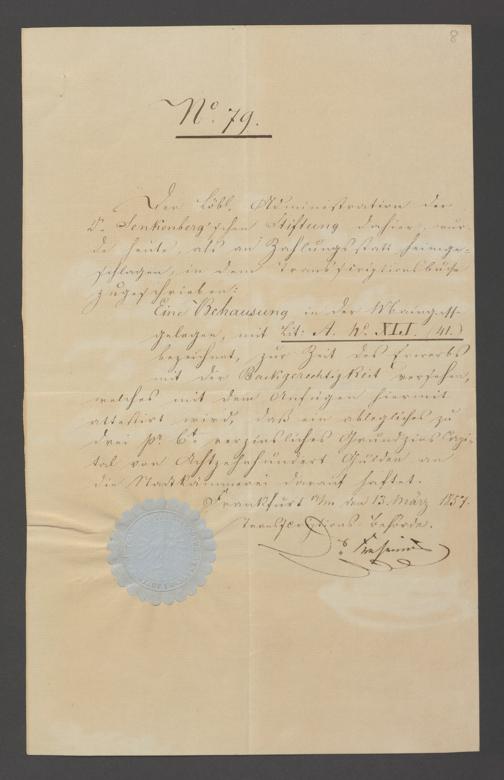 8
No. 79.
Der Löbl. Administration der
Dr. Senkenberg'schen Stiftung dahier, wur-
de heute, als an Zahlungsstatt heimge-
schlagen, in dem Transscriptionsbuche
zugeschrieben:
Eine Behausung in der Maingass
gelegen, mit Lit: A. No. XLI. (41.)
bezeichnet, zur Zeit des Erwerbs
mit der Backgerechtigkeit versehen,
welches mit dem Anfügen hiermit
attestirt wird, daß ein ablegliches zu
drei pr. Ct. verzinsliches Grundzins Capi-
tal von Achtzehnhundert Gulden an
die Stadtkämmerei darauf haftet.
Frankfurt a/m den 13. März 1857.
Transscriptions-Behörde.
Dr. Fresenius